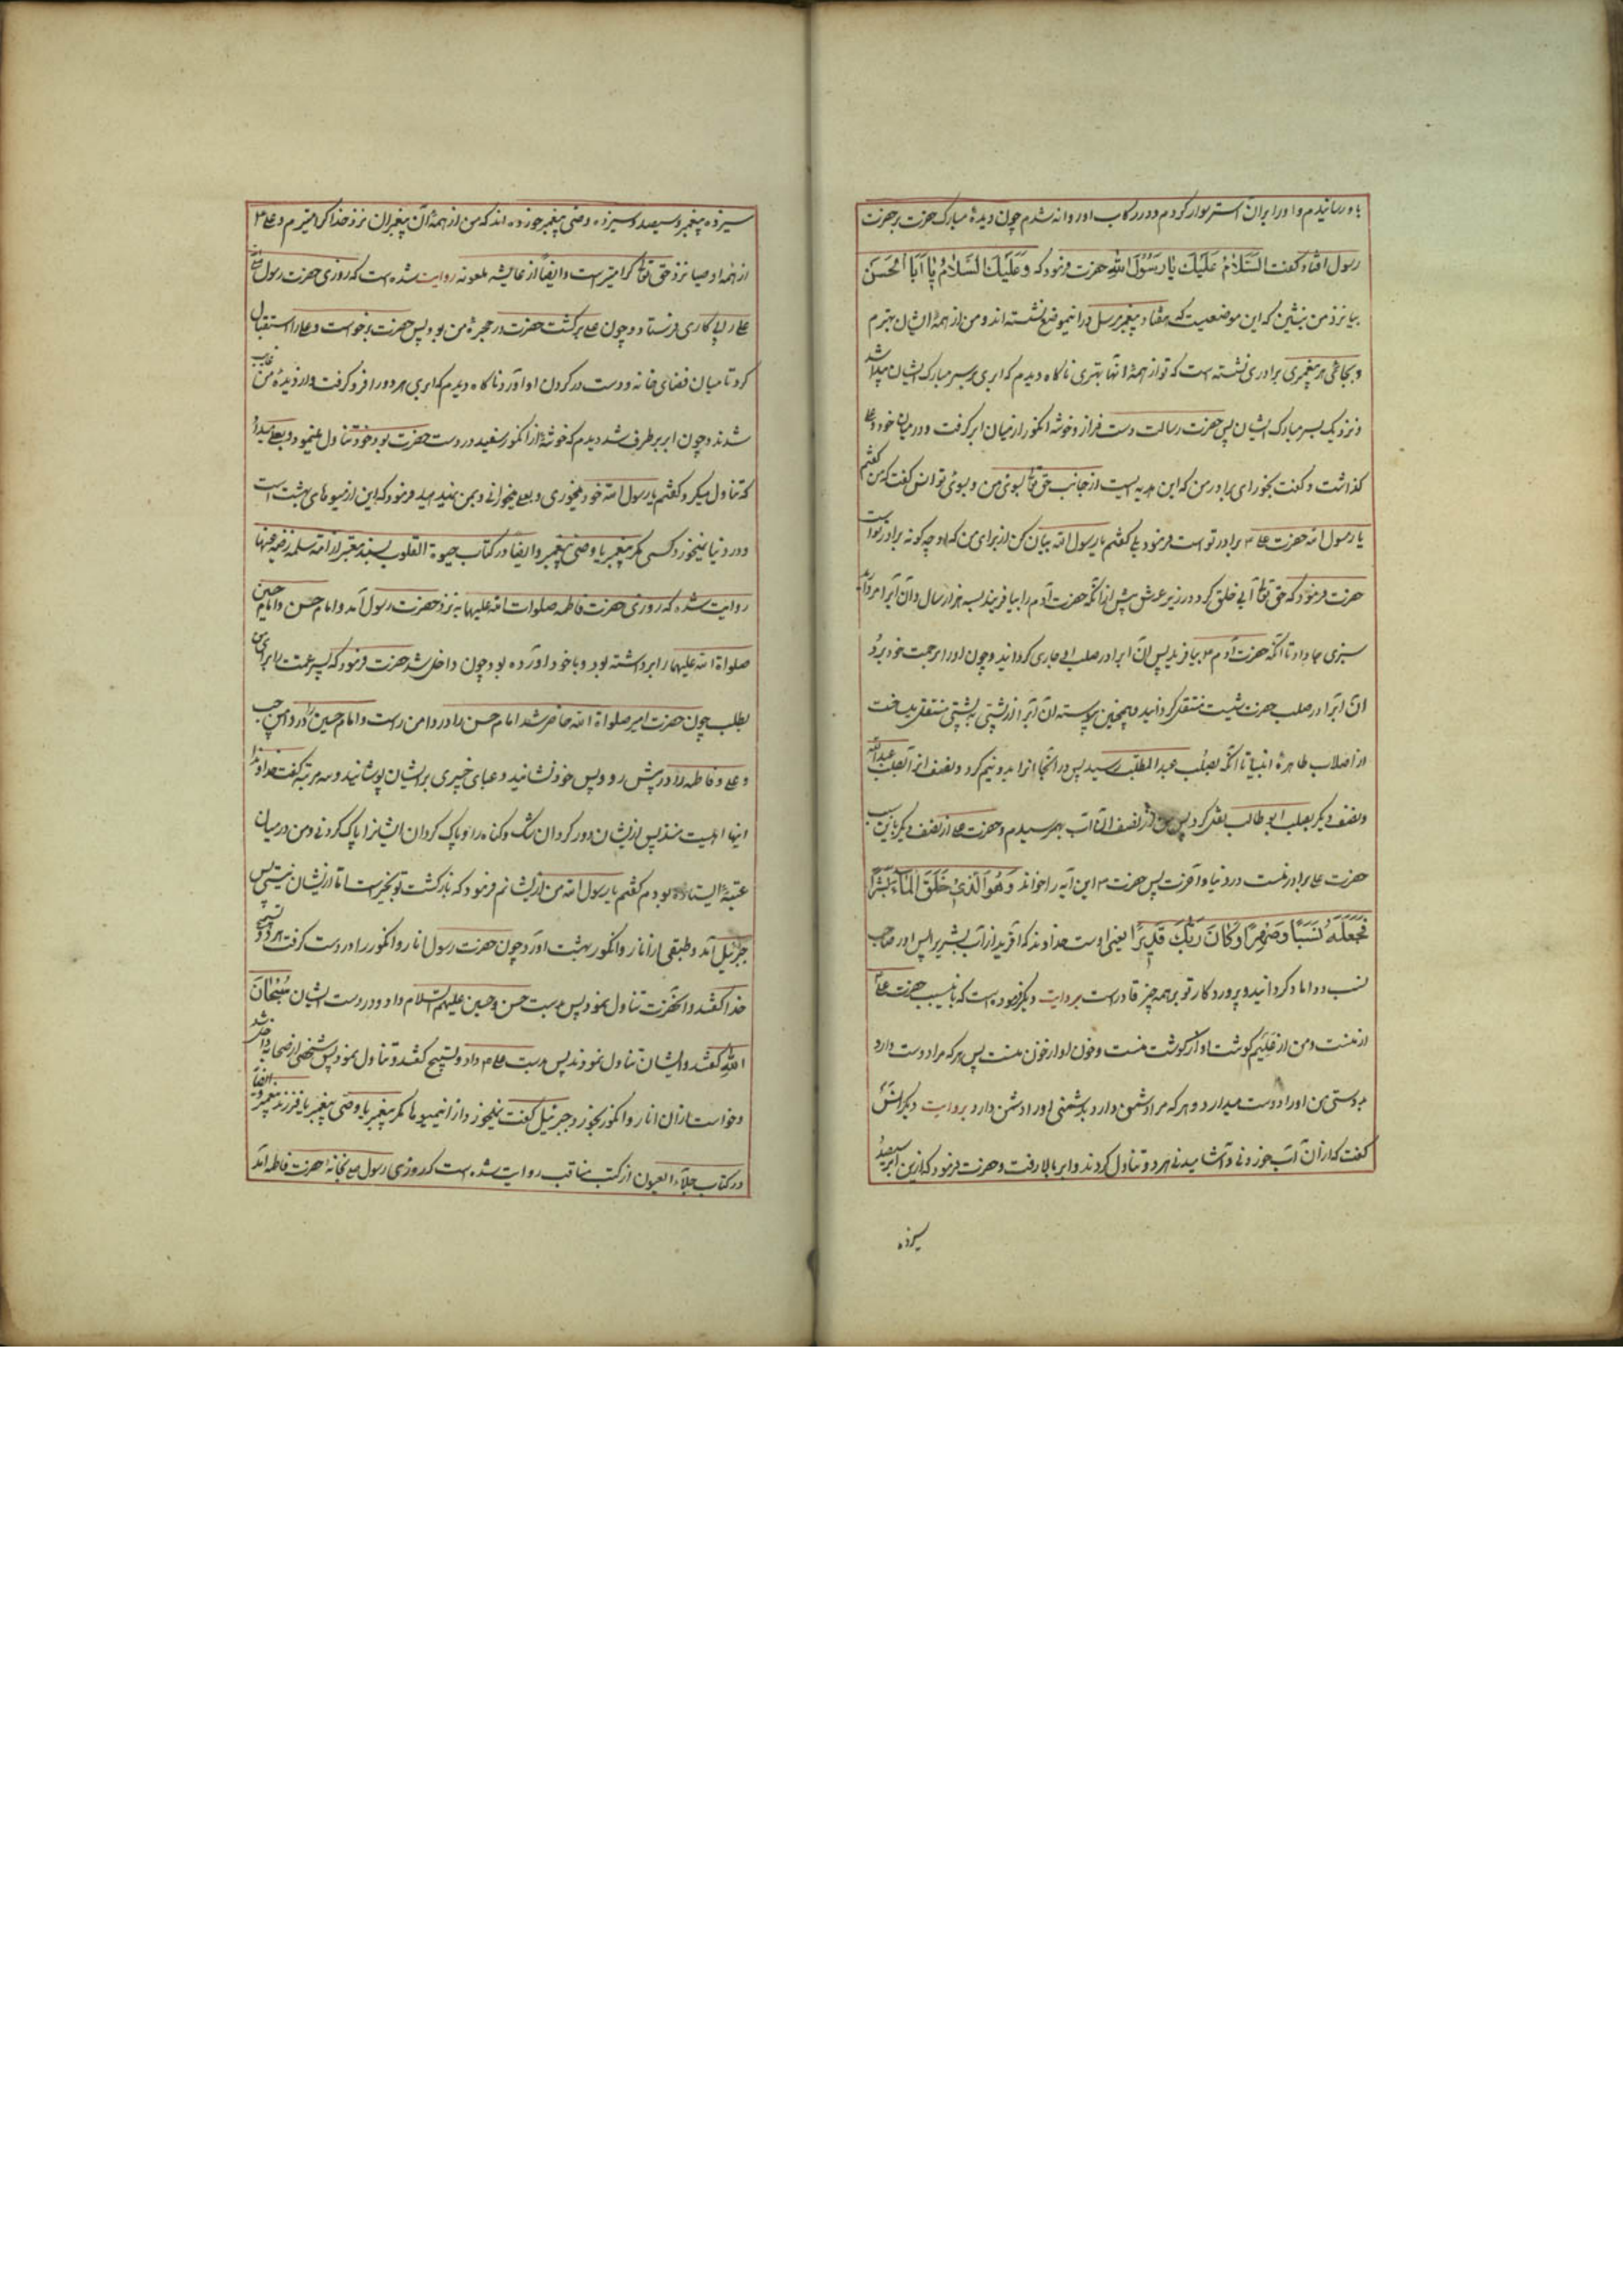 باو رسانیدم و او را بران استر سوار کردم و در رکاب او روانه شدم چون دیدهٔ مبارک حضرت بر حضرت
رسول افتاد گفت اَلسَّلَامُ عَلَیْكَ یَا رَسُوْلَ اللّٰهِ حضرت فرمود که وَ عَلَیْكَ السَّلَامُ یَا اَبَا الْحَسَنَ
بیا نزد من بنشین که این موضعیست که هفتاد پیغمبر مرسل در اینموضع نشسته‌اند و من از همهٔ ایشان بهترم
و بجای هر پیغمبری برادری نشسته است که تو از همهٔ آنها بهتری ناگاه دیدم که ابری بر سر مبارک ایشان پیدا شد
و نزدیک بسر مبارک ایشان پس حضرت رسالت دست فراز و خوشه انگور از میان ابر گرفت و در میان خود و علی
گذاشت و گفت بخور ای برادر من که این هدیه ایست از جانب حق تعالی بسوی من و بسوی تو انس گفت که من گفتم
یا رسول الله حضرت علی ۴ برادر تو است فرمود بلی گفتم یا رسول الله بیان کن از برای من که او چگونه برادر تو است
حضرت فرمود که حق تعالی آبی خلق کرد در زیر عرش پیش از آنکه حضرت آدم را بیافریند بسه هزار سال و آن آبرا در مروارید
سبزی جا داد تا آنکه حضرت آدم ۴ بیافرید پس آن آبرا در صلب او جاری گردانید و چون او را برحمت خود برد
آن آبرا در صلب حضرت شیث منتقل گردانید و همچنین پیوسته آن آبرا از پشتی به پشتی منتقل میساخت
از اصلاب طاهرهٔ انبیا تا آنکه بصلب عبدالمطلب رسید پس در آنجا آنرا بدو نیم کرد و نصف آنرا بصلب عبدالله
و نصف دیگر بصلب ابو طالب نقل کرد پس من از نصف آن آب بهم رسیدم و حضرت علی از نصف دیگر باین سبب
حضرت علی برادر منست در دنیا و آخرت پس حضرت ۴ این آیه را خواند وَهُوَ الَّذِیْ خَلَقَ الْمَآءَ بَشَرًا
فَجَعَلَهُ نَسَبًا وَصِهْرًا وَ كَانَ رَبُّكَ قَدِیْرًا یعنی اوست خداوند که آفرید از آب بشر را پس او را صاحب
نسب و داماد گردانید و پروردگار تو بر همه چیز قادر است بروایت دیگر فرموده است که باینسبب حضرت علی ۴
از منست و من از علیم گوشت او از گوشت منست و خون او از خون منست پس هر که مرا دوست دارد
بدوستی من او را دوست میدارد و هر که مرا دشمن دارد بدشمنی او را دشمن دارد بروایت دیگر انس
گفت که از آن آب خوردنی و آشامیدنی هر دو تناول کردند و ابر بالا رفت و حضرت فرمود که ازین ابر سیصد
سیزده
سیزده پیغمبر و سیصد و سیزده وصی پیغمبر خورده‌اند که من از همهٔ آن پیغمبران نزد خدا گرامیترم و علی ۴
از همه اوصیا نزد حق تعالی گرامیتر است و ایضاً از عایشه ملعونه روایت شده است که روزی حضرت رسول
علی را پی کاری فرستاد و چون علی برگشت حضرت در حجرهٔ من بود پس حضرت برخواست و علی را استقبال
کرد تا میان فضای خانه و دست در گردن او آورد ناگاه دیدم که ابری هر دو را فرو گرفت و از دیدهٔ من غایب
شدند و چون ابر برطرف شد دیدم که خوشهٔ از انگور سفید در دست حضرت بود و خود تناول مینمود و بعلی میداد
که تناول میکرد گفتم یا رسول الله خود میخوری و بعلی میخورانی و بمن نمیدهید فرمود که این از میوهای بهشت است
و در دنیا نمیخورد کسی مگر پیغمبر یا وصی پیغمبر و ایضاً در کتاب حیوة القلوب بسند معتبر از ام سلمه رضی عنها
روایت شده که روزی حضرت فاطمه صلوات الله علیها به نزد حضرت رسول آمد و امام حسن و امام حسین
صلواة الله علیهما را برداشته بود و با خود آورده بود چون داخل شد حضرت فرمود که پسر عمت را برای من
بطلب چون حضرت امیر صلواة الله حاضر شد امام حسن را در دامن راست و امام حسین را در دامن چپ
و علی و فاطمه را در پیش رو و پس خود نشانید و عبای خیبری بر ایشان پوشانید و سه مرتبه گفت خداوندا
اینها اهلبیت منند پس از ایشان دور گردان شک و گناه را و پاک گردان ایشانرا پاک کردنی و من در میان
عتبهٔ ایستاده بودم گفتم یا رسول الله من از ایشانم فرمود که بازگشت تو بخیر است اما از ایشان نیستی پس
جبرئیل آمد و طبقی از انار و انگور بهشت آورد چون حضرت رسول انار و انگور را در دست گرفت هر دو تسبیح
خدا گفتند و آنحضرت تناول نمود پس بدست حسن و حسین علیهم السلام داد و در دست ایشان سُبْحَانَ
اللّٰهِ گفتند و ایشان تناول نمودند پس بدست علی ۴ داد و تسبیح گفتند و تناول نمود پس شخصی از صحابه داخل شد
و خواست از آن انار و انگور بخورد جبرئیل گفت نمیخورد از اینمیوها مگر پیغمبر یا وصی پیغمبر یا فرزند پیغمبر و ایضاً
در کتاب جلآء العیون از کتب مناقب روایت شده است که روزی رسول ص بخانهٔ حضرت فاطمه آمد